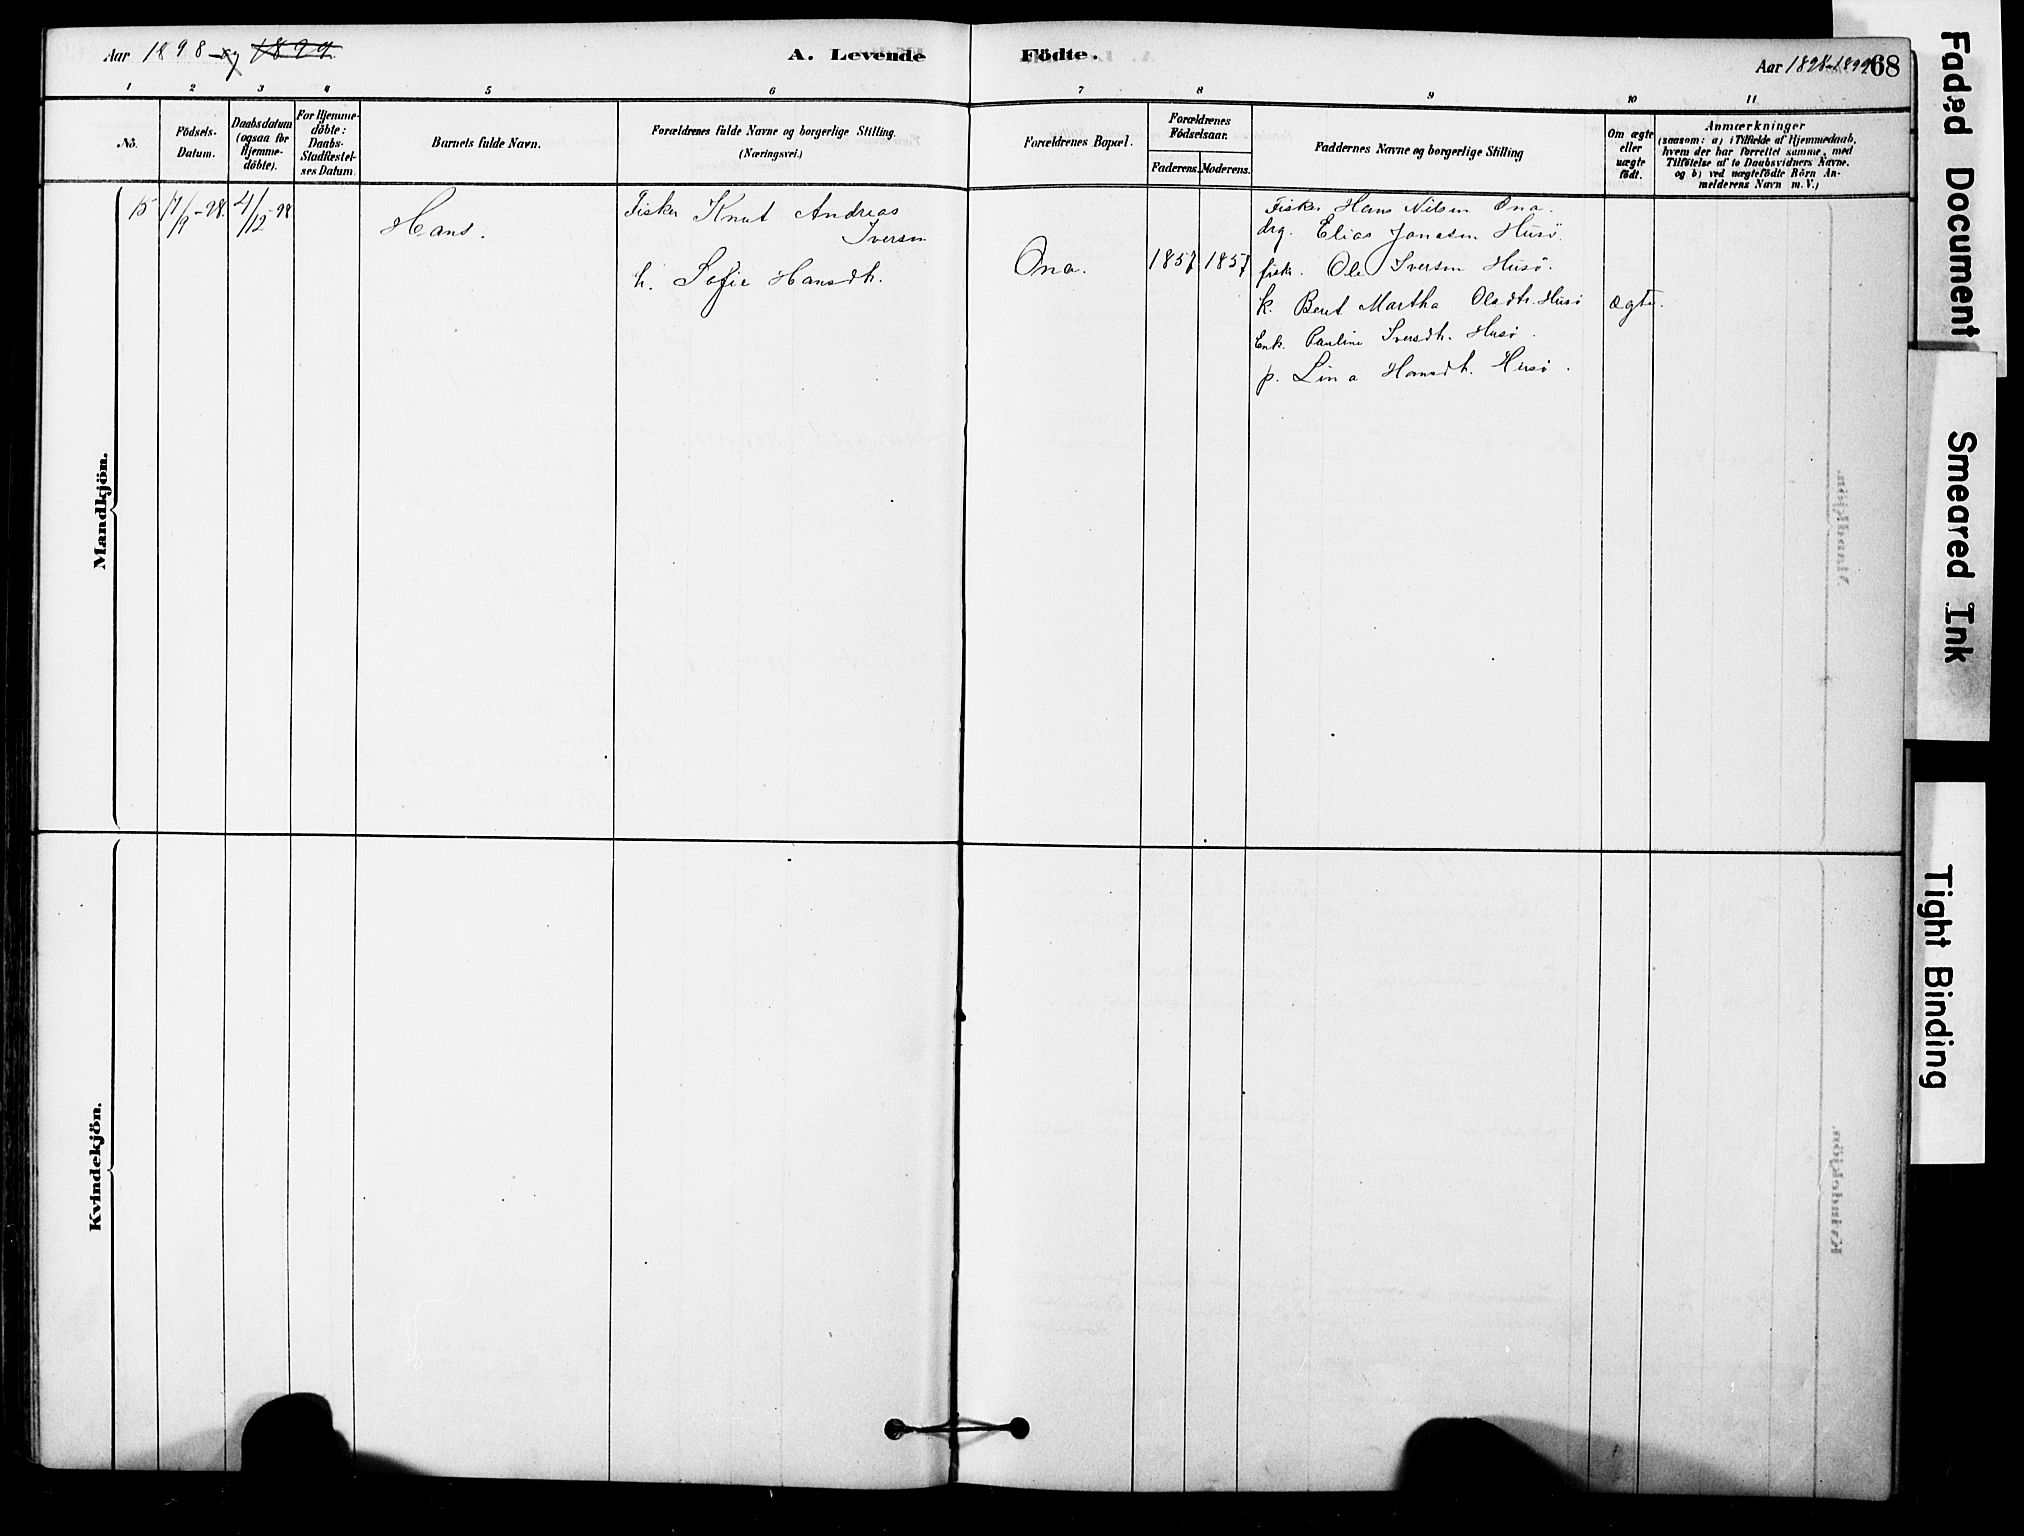 Aar 1898 og 1899
A. Levende
Födte.
Aar 1898-1899
68
1 2 3 4 5 6 7 8 9 10 11
No.
Födsels-
Datum.
Daabsdatum
(ogsaa for
Hjemme-
döbte).
For Hjemme-
döbte:
Daabs-
Stadfæstel-
ses Datum.
Barnets fulde Navn.
Forældrenes fulde Navne og borgerlige Stilling.
(Næringsvei.)
Forældrenes Bopæl.
Forældrenes
Födselsaar.
Faderens. Moderens.
Faddernes Navne og borgerlige Stilling
Om ægte
eller
uægte
födt.
Anmærkninger
(saasom: a) i Tilfælde af Hjemmedaab,
hvem der har forrettet samme, med
Tilföielse af to Daabsvidners Navne.
og b) ved uægtefödte Börn An-
melderens Navn m. V.)
Mandkjön.
15
17/9-98.
4/12-98
Hans.
Fisker Knut Andreas
Iversen
h. Sofie Hansdtr.
Ona.
1857 1857
Fisker Hans Nilsen Ona.
drg. Elias Jonasen Husö.
fisk. Ole Iversen Husö.
k. Berit Martha Olsdtr. Husö
Enk. Pauline Iversdtr. Husö.
p. Lina Hansdtr. Husö.
ægte.
Kvindekjön.
Faded Document
Smeared Ink
Tight Binding